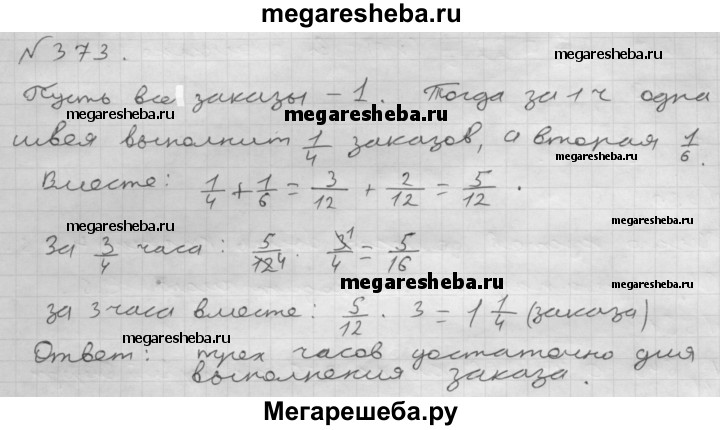 megaresheba.ru
№373.
megaresheba.ru
Пусть все заказы - 1. Тогда за 1 ч одна
megaresheba.ru megaresheba.ru
швея выполнит 1/4 заказов, а вторая 1/6.
Вместе: 1/4 + 1/6 = 3/12 + 2/12 = 5/12.
megaresheba.ru megaresheba.ru
За 3/4 часа: 5/12 4 · 3 1/4 = 5/16
megaresheba.ru
за 3 часа вместе: 5/12 · 3 = 1 1/4 (заказа)
megaresheba.ru megaresheba.ru
Ответ: трех часов достаточно для
выполнения заказа.
Мегарешеба.ру